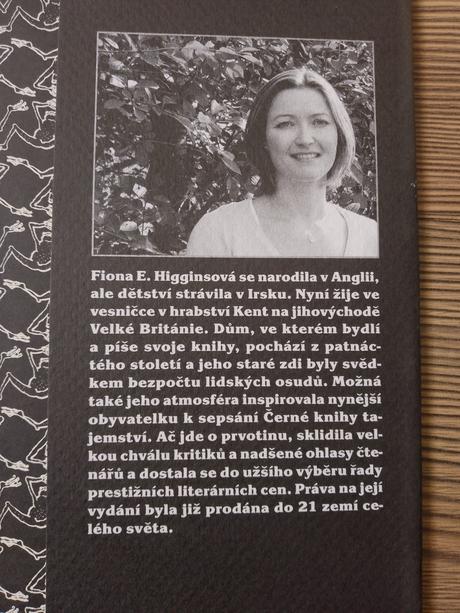 Fiona E. Higginsová se narodila v Anglii,
ale dětství strávila v Irsku. Nyní žije ve
vesničce v hrabství Kent na jihovýchodě
Velké Británie. Dům, ve kterém bydlí
a píše svoje knihy, pochází z patnác-
tého století a jeho staré zdi byly svěd-
kem bezpočtu lidských osudů. Možná
také jeho atmosféra inspirovala nynější
obyvatelku k sepsání Černé knihy ta-
jemství. Ač jde o prvotinu, sklidila vel-
kou chválu kritiků a nadšené ohlasy čte-
nářů a dostala se do užšího výběru řady
prestižních literárních cen. Práva na její
vydání byla již prodána do 21 zemí ce-
lého světa.